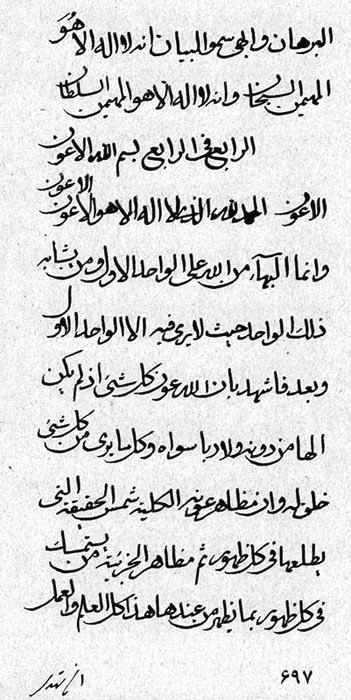 البرهان والحی سموا للبیان انه لا اله الا هو
المهیمن السبحان وانه لا اله الا هو المهیمن السلطان
الرابع فی الرابع بسم الله الاعون
الاعون الحمد لله الذی لا اله الا هو الاعون الاعون
وانما البهاء من الله علی الواحد الاول ومن یشابه
ذلک الواحد حیث لا یری فیه الا الواحد الاول
وبعد فاشهد بان الله عون کل شیئ اذ لم یکن
الها من دونه ولا ربا سواه وکل ما یری من کل شیئ
خلق له وان مظاهر عونه الکلیة شمس الحقیقة التی
یطلعها فی کل ظهور ثم مظاهر الجزئیة من یستمسک
فی کل ظهور بما یظهر من عندها هذا کل العلم والعمل
۶۹۷